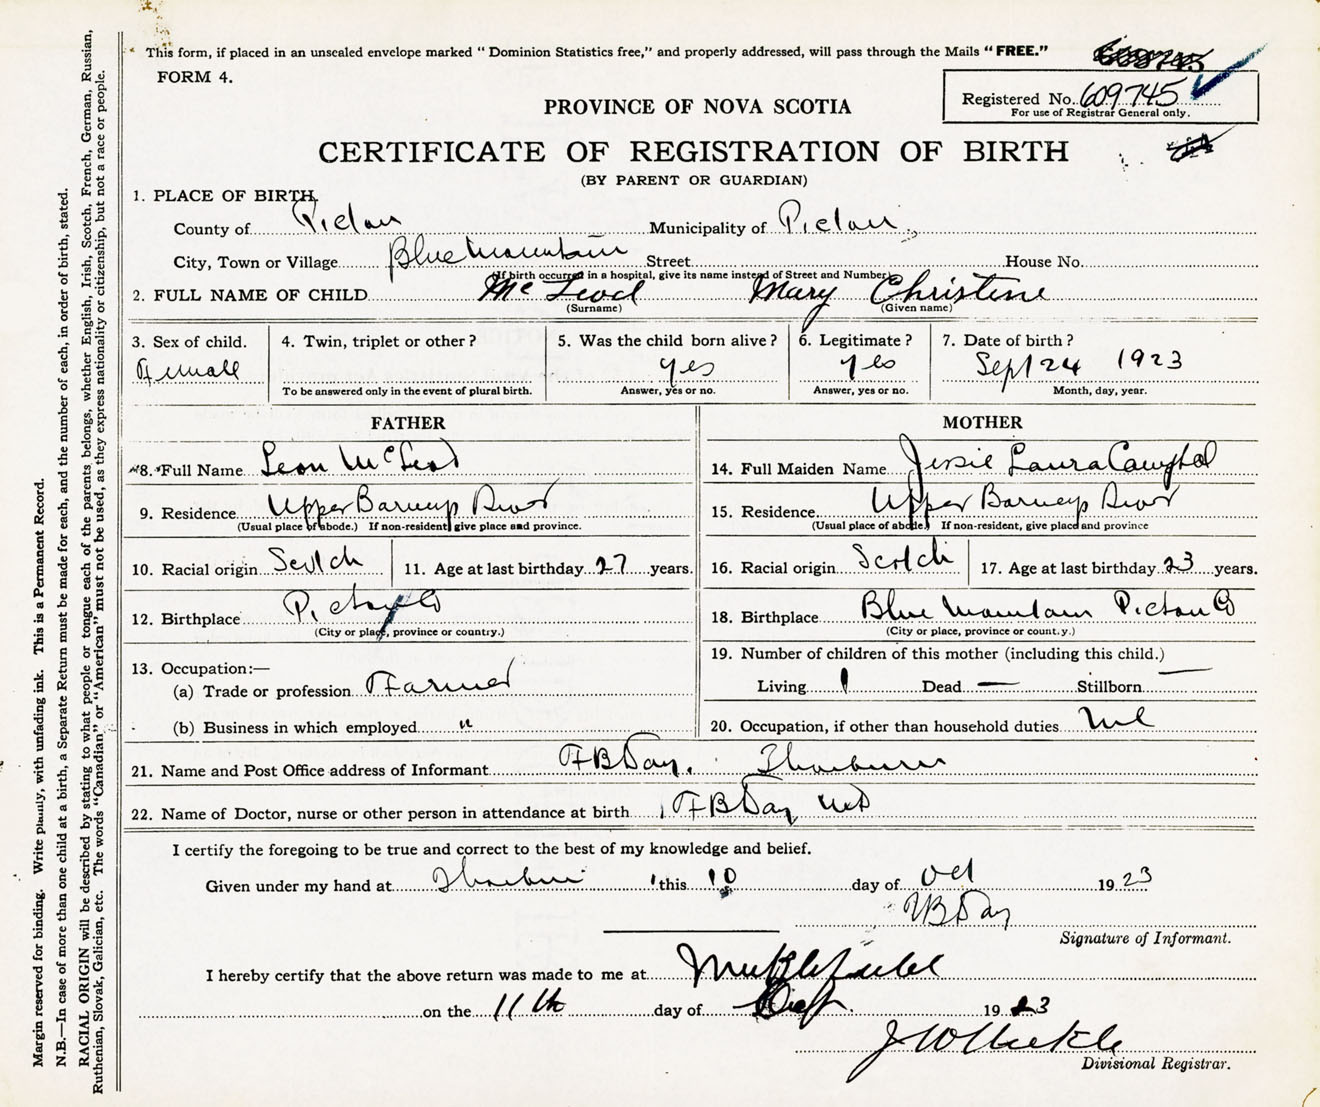 This form, if placed in an unsealed envelope marked “Dominion Statistics free,” and properly addressed, will pass through the Mails “FREE.”
FORM 4.
Registered No. 609745
For use of Registrar General only.
PROVINCE OF NOVA SCOTIA
CERTIFICATE OF REGISTRATION OF BIRTH
(BY PARENT OR GUARDIAN)
1. PLACE OF BIRTH,
County of Pictou Municipality of Pictou
City, Town or Village Blue Mountain Street House No.
(If birth occurred in a hospital, give its name instead of Street and Number)
2. FULL NAME OF CHILD McLeod Mary Christene
(Surname) (Given name)
3. Sex of child. 4. Twin, triplet or other? 5. Was the child born alive? 6. Legitimate? 7. Date of birth?
Female yes yes Sept 24 1923
To be answered only in the event of plural birth. Answer, yes or no. Answer, yes or no. Month, day, year.
FATHER
8. Full Name Leon McLeod
9. Residence Upper Barneys River
(Usual place of abode.) If non-resident, give place and province.
10. Racial origin Scotch 11. Age at last birthday 27 years.
12. Birthplace Pictou Co
(City or place, province or country.)
13. Occupation:—
(a) Trade or profession Farmer
(b) Business in which employed "
MOTHER
14. Full Maiden Name Jessie Laura Campbell
15. Residence Upper Barneys River
(Usual place of abode.) If non-resident, give place and province
16. Racial origin Scotch 17. Age at last birthday 23 years.
18. Birthplace Blue Mountain Pictou Co
(City or place, province or country.)
19. Number of children of this mother (including this child.)
Living 1 Dead — Stillborn —
20. Occupation, if other than household duties
21. Name and Post Office address of Informant FB Day. Thorburn
22. Name of Doctor, nurse or other person in attendance at birth FB Day MD
I certify the foregoing to be true and correct to the best of my knowledge and belief.
Given under my hand at Thorburn this 10 day of Oct 1923
FB Day
Signature of Informant.
I hereby certify that the above return was made to me at
on the 11th day of 1923
J W
Divisional Registrar.
Margin reserved for binding. Write plainly, with unfading ink. This is a Permanent Record.
N.B.—In case of more than one child at a birth, a Separate Return must be made for each, and the number of each, in order of birth, stated.
RACIAL ORIGIN will be described by stating to what people or tongue each of the parents belongs, whether English, Irish, Scotch, French, German, Russian,
Ruthenian, Slovak, Galician, etc. The words “Canadian” or “American” must not be used, as they express nationality or citizenship, but not a race or people.